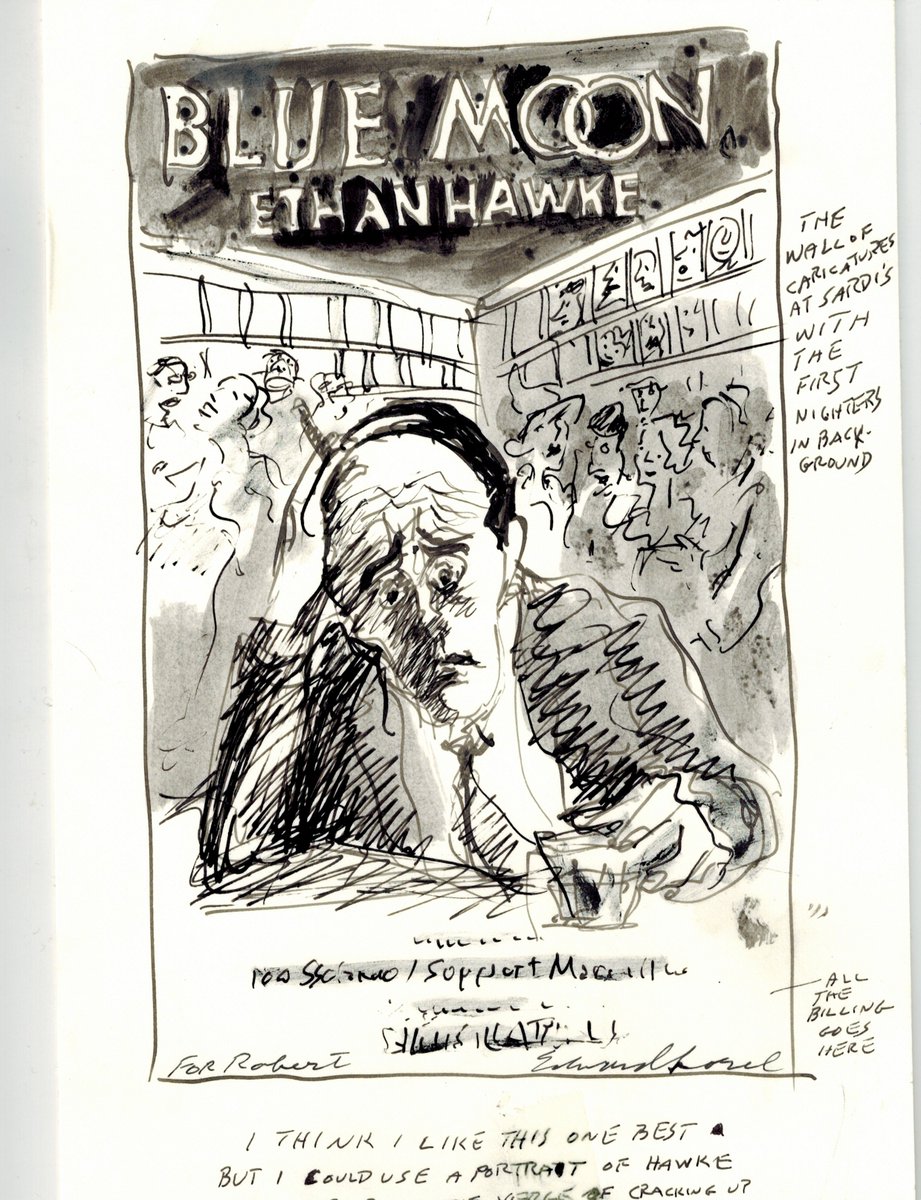 BLUE MOON
ETHAN HAWKE
THE
WALL OF
CARICATURES
AT SARDI'S
WITH
THE
FIRST
NIGHTERS
IN BACK-
GROUND
Support
ALL
THE
BILLING
GOES
HERE
FOR Robert
Edward Sorel
I THINK I LIKE THIS ONE BEST
BUT I COULD USE A PORTRAIT OF HAWKE
VERGE OF CRACKING UP